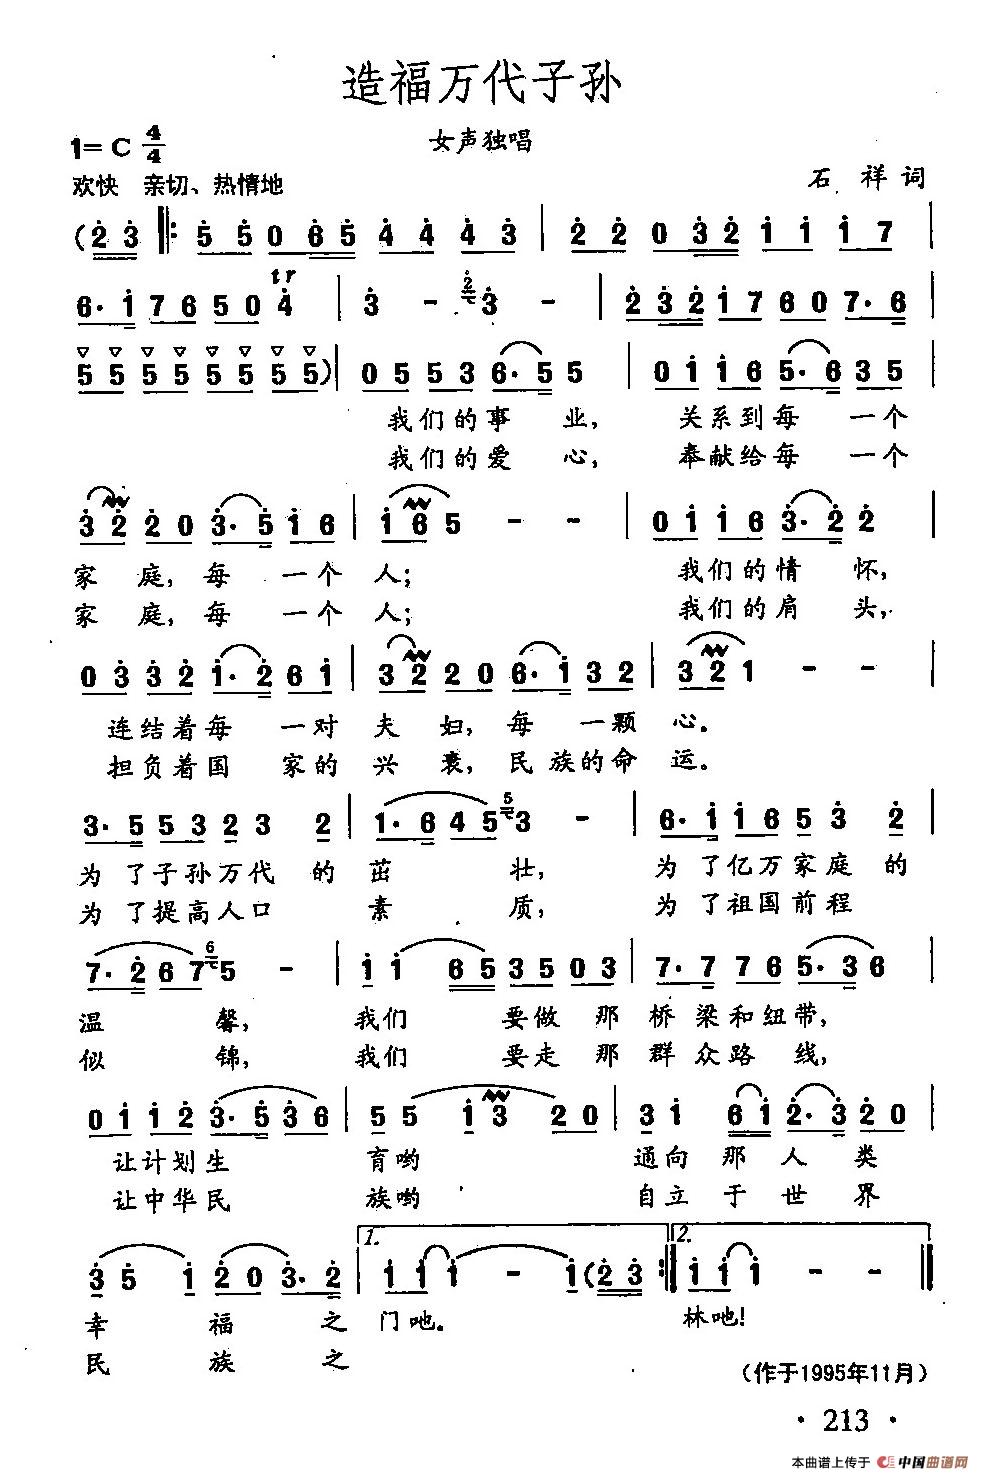 造福万代子孙
女声独唱
1=C 4/4
欢快 亲切、热情地
石祥词
(2 3 ‖: 5 5 0 6 5 4 4 4 3 | 2 2 0 3 2 1 1 1 7 |
6· 1 7 6 5 0 tr 4 | 3 - 2 3 - | 2 3 2 1 7 6 0 7· 6 |
5 5 5 5 5 5 5 5) | 0 5 5 3 6· 5 5 | 0 1 1 6 5· 6 3 5 |
我们的事业, 关系到每一个
我们的爱心, 奉献给每一个
3 2 2 0 3· 5 1 6 | 1 6 5 - - | 0 1 1 6 3· 2 2 |
家庭,每一个人; 我们的情怀,
家庭,每一个人; 我们的肩头,
0 3 3 2 1· 2 6 1 | 3 2 2 0 6· 1 3 2 | 3 2 1 - - |
连结着每一对夫妇,每一颗心。
担负着国家的兴衰,民族的命运。
3· 5 5 3 2 3 2 | 1· 6 4 5 5 3 - | 6· 1 1 6 5 3 2 |
为了子孙万代的茁壮, 为了亿万家庭的
为了提高人口素质, 为了祖国前程
7· 2 6 7 6 5 - | 1 1 6 5 3 5 0 3 | 7· 7 7 6 5· 3 6 |
温馨, 我们要做那桥梁和纽带,
似锦, 我们要走那群众路线,
0 1 1 2 3· 5 3 6 | 5 5 1 3 2 0 | 3 1 6 1 2· 3 2 0 |
让计划生育哟 通向那人类
让中华民族哟 自立于世界
3 5 1 2 0 3· 2 | 1. 1 1 1 - 1 (2 3 :‖ 2. 1 1 1 - - ‖
幸福之门吔。 林吔!
民族之
(作于1995年11月)
· 213 ·
本曲谱上传于 中国曲谱网